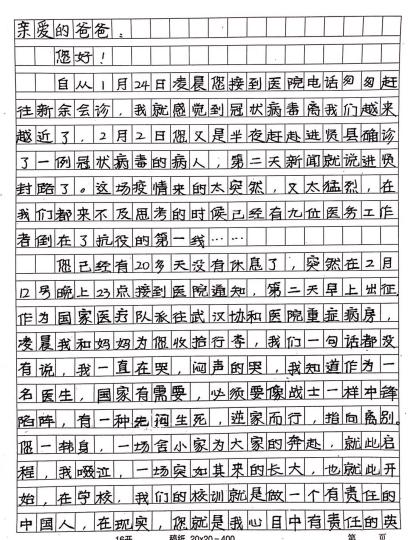 亲爱的爸爸：
您好！
自从1月24日凌晨您接到医院电话匆匆赶
往新余会诊，我就感觉到冠状病毒离我们越来
越近了，2月2日您又是半夜赶赴进贤县确诊
了一例冠状病毒的病人，第二天新闻就说进贤
封路了。这场疫情来的太突然，又太猛烈，在
我们都来不及思考的时候已经有九位医务工作
者倒在了抗役的第一线……
您已经有20多天没有休息了，突然在2月
12号晚上23点接到医院通知，第二天早上出征
作为国家医疗队派往武汉协和医院重症病房，
凌晨我和妈妈为您收拾行李，我们一句话都没
有说，我一直在哭，闷声的哭，我知道作为一
名医生，国家有需要，必须要像战士一样冲锋
陷阵，有一种先河生死，逆家而行，指向离别。
您一转身，一场舍小家为大家的奔赴，就此启
程，我啜泣，一场突如其来的长大，也就此开
始，在学校，我们的校训就是做一个有责任的
中国人，在现实，您就是我心目中有责任的英
16开 稿纸 20×20=400 第 页